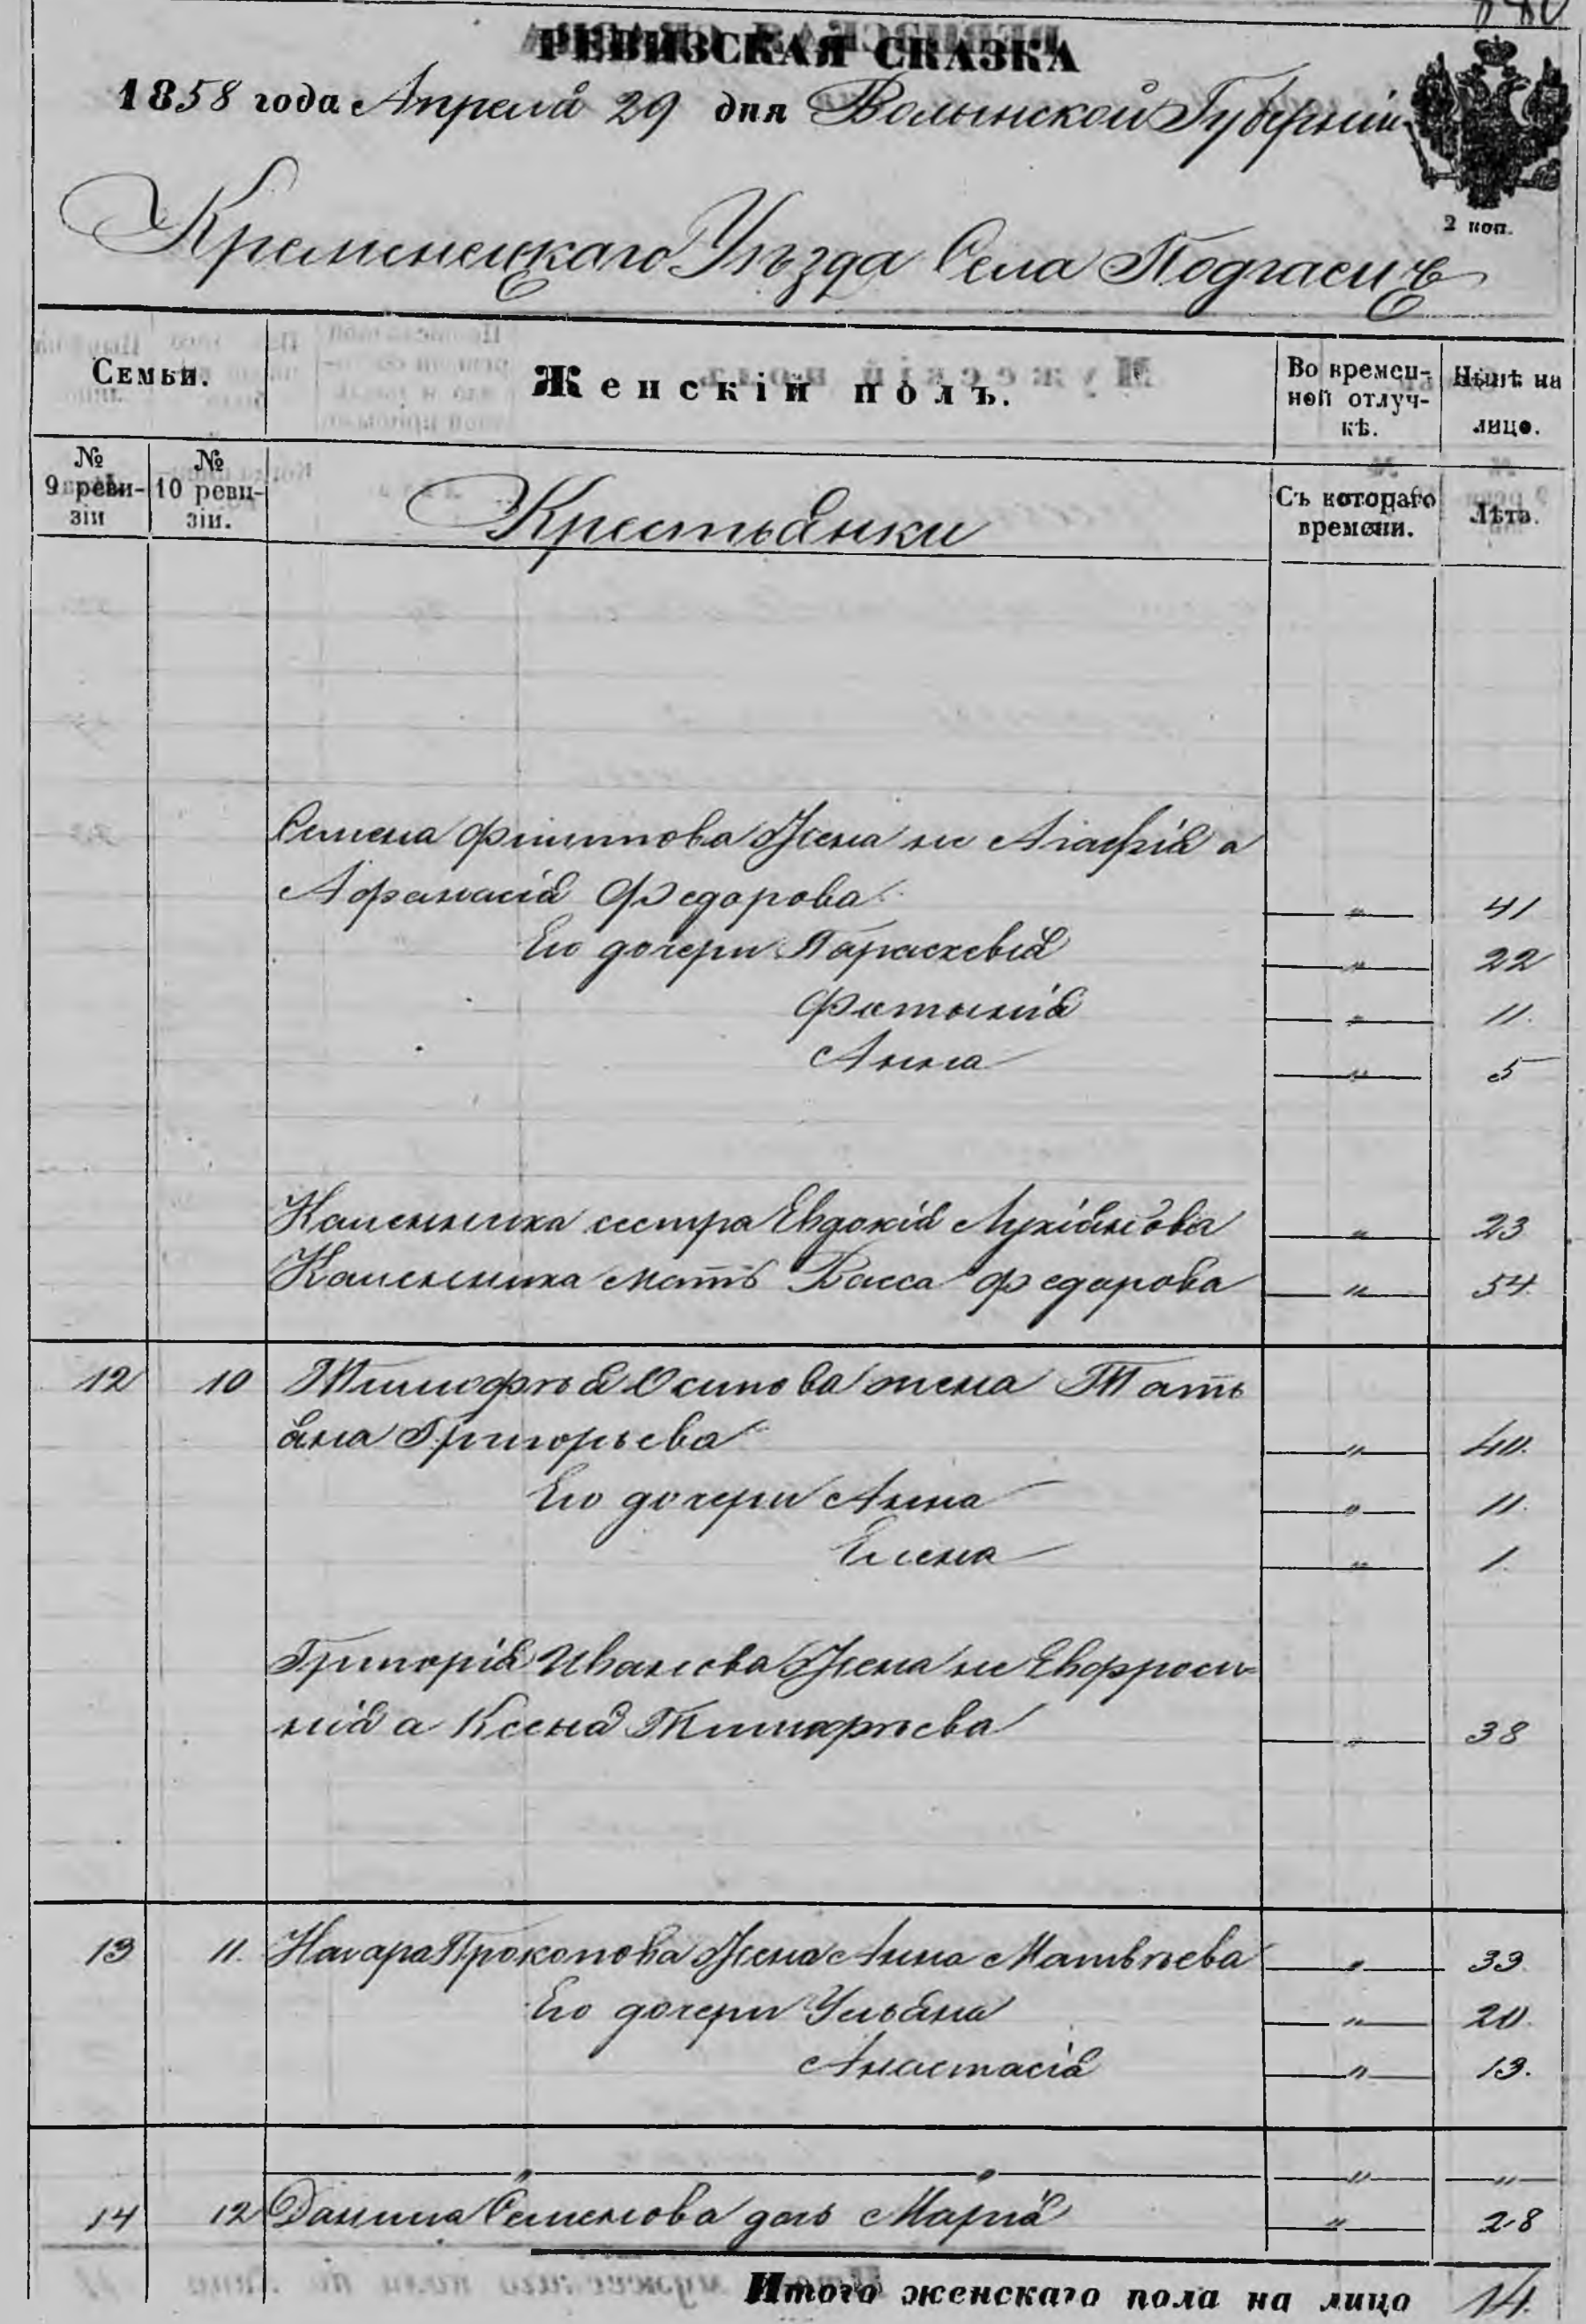 РЕВИЗСКАЯ СКАЗКА
1858 года Апреля 29 дня Волынской Губерніи
2 коп.
Кременецкаго Уѣзда Села Подгаецъ
Семьи.
Женскій полъ.
Во времен-
ной отлуч-
кѣ.
Нынѣ на
лицо.
№
9 реви-
зіи
№
10 реви-
зіи.
Крестьянки
Съ котораго
времени.
Лѣта.
Семена Филипова Жена не Агафія а
Афанасія Федорова — " — 41
Его дочери Параскевія — " — 22
Фетинія — " — 11.
Анна — " — 5
Каленника сестра Евдокія Лукіянова — " — 23
Каленника мать Васса Федорова — " — 54.
12 10 Тимофѣя Осипова жена Тать
яна Григорьева — " — 40.
Его дочери Анна — " — 11.
Елена — " — 1.
Григорія Иванова Жена не Евфроси-
нія а Ксенія Тимофѣева — " — 38
13 11. Назара Прокопова Жена Анна Матвѣева — " — 39.
Его дочери Ульяна — " — 20.
Анастасія — " — 13.
— " — " — — " — — " —
14 12 Данила Семенова дочь Марія — " — 28
Итого женскаго пола на лицо 14.